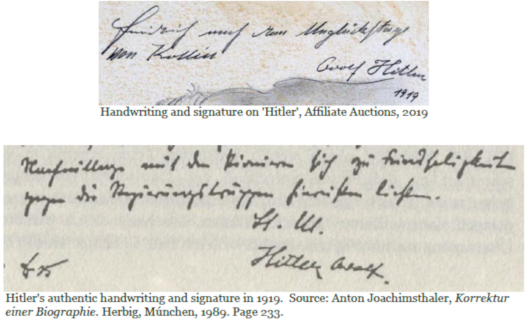 Friedrich nach dem Unglückstage
von Kollin
Adolf Hitler
1919
Handwriting and signature on 'Hitler', Affiliate Auctions, 2019
Nachmittags mit den Pionieren sich zu Feindseligkeit
gegen die Regierungstruppen hinreißen ließen
Hitler Adolf.
Hitler's authentic handwriting and signature in 1919. Source: Anton Joachimsthaler, Korrektur
einer Biographie. Herbig, Múnchen, 1989. Page 233.